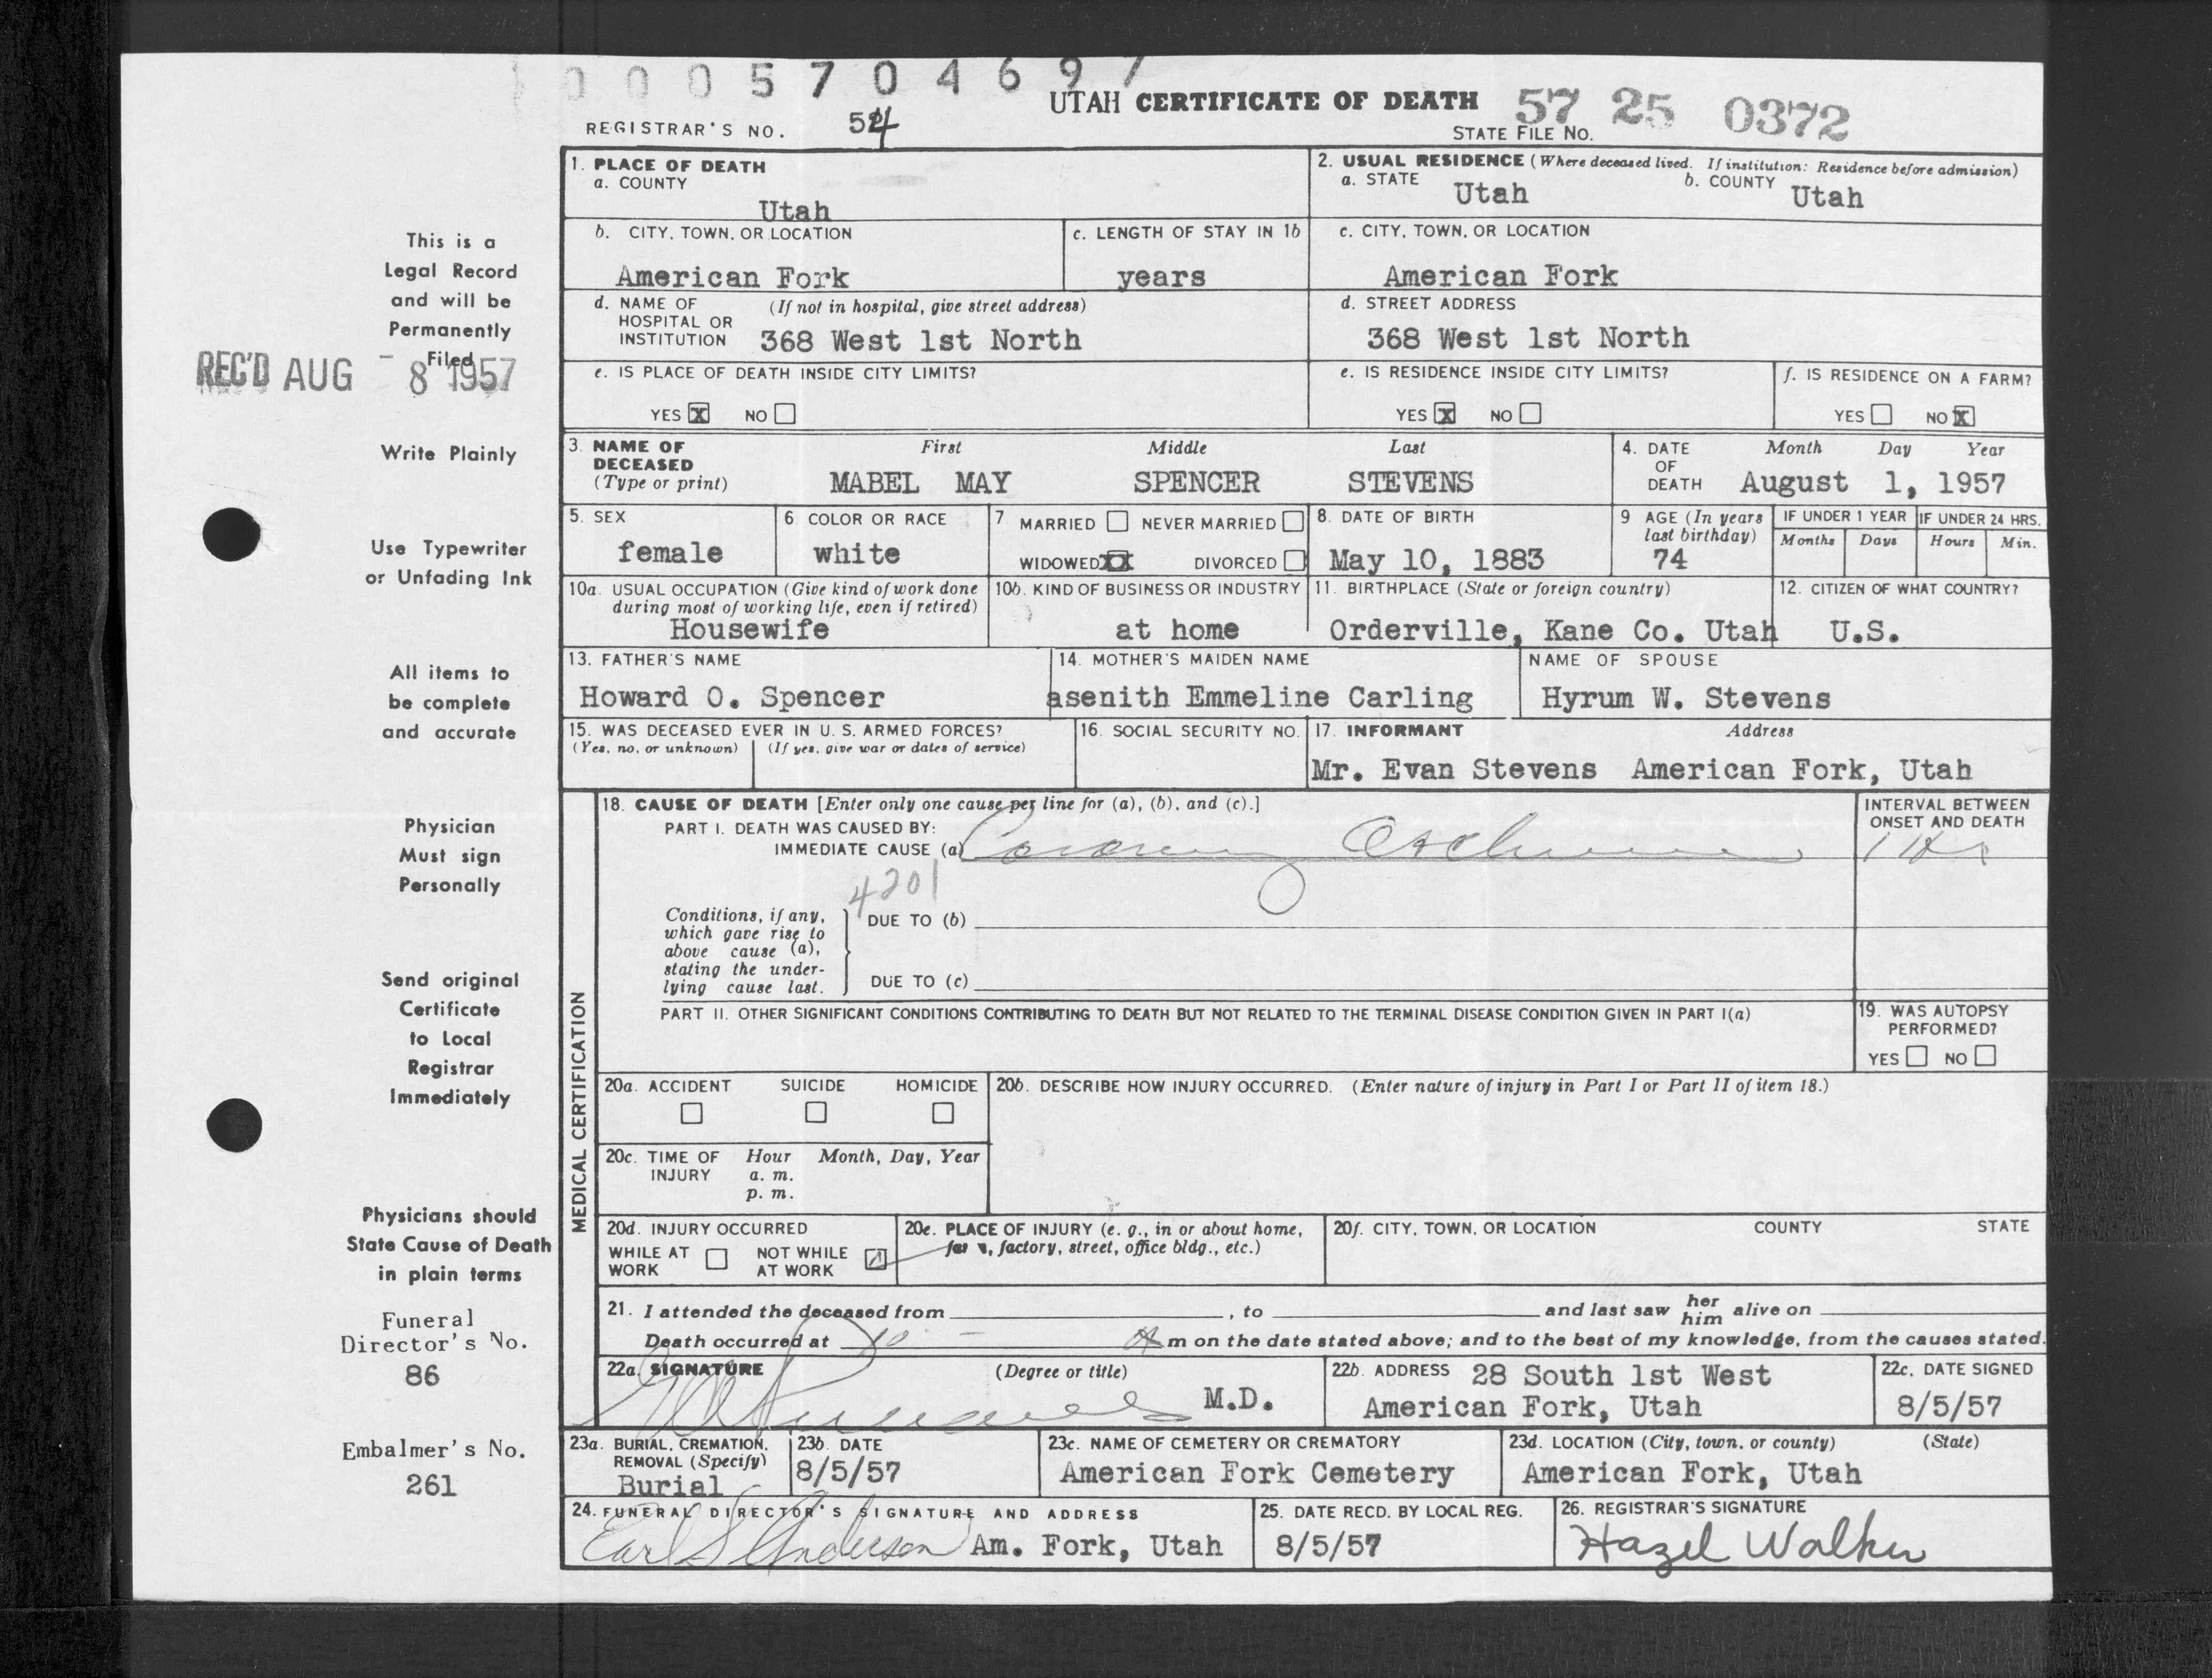 0 0 0 5 7 0 4 6 9 7
UTAH CERTIFICATE OF DEATH
57 25 0372
REGISTRAR'S NO. 54
STATE FILE NO.
This is a
Legal Record
and will be
Permanently
Filed
REC'D AUG - 8 1957
Write Plainly
Use Typewriter
or Unfading Ink
All items to
be complete
and accurate
Physician
Must sign
Personally
Send original
Certificate
to Local
Registrar
Immediately
Physicians should
State Cause of Death
in plain terms
Funeral
Director's No.
86
Embalmer's No.
261
1. PLACE OF DEATH
a. COUNTY
Utah
2. USUAL RESIDENCE (Where deceased lived. If institution: Residence before admission)
a. STATE Utah b. COUNTY Utah
b. CITY, TOWN, OR LOCATION
American Fork
c. LENGTH OF STAY IN 1b
years
c. CITY, TOWN, OR LOCATION
American Fork
d. NAME OF (If not in hospital, give street address)
HOSPITAL OR
INSTITUTION 368 West 1st North
d. STREET ADDRESS
368 West 1st North
e. IS PLACE OF DEATH INSIDE CITY LIMITS?
YES X NO
e. IS RESIDENCE INSIDE CITY LIMITS?
YES X NO
f. IS RESIDENCE ON A FARM?
YES NO X
3. NAME OF First Middle Last
DECEASED
(Type or print) MABEL MAY SPENCER STEVENS
4. DATE Month Day Year
OF
DEATH August 1, 1957
5. SEX
female
6. COLOR OR RACE
white
7. MARRIED NEVER MARRIED
WIDOWED XX DIVORCED
8. DATE OF BIRTH
May 10, 1883
9. AGE (In years
last birthday)
74
IF UNDER 1 YEAR
Months Days
IF UNDER 24 HRS.
Hours Min.
10a. USUAL OCCUPATION (Give kind of work done
during most of working life, even if retired)
Housewife
10b. KIND OF BUSINESS OR INDUSTRY
at home
11. BIRTHPLACE (State or foreign country)
Orderville, Kane Co. Utah
12. CITIZEN OF WHAT COUNTRY?
U.S.
13. FATHER'S NAME
Howard O. Spencer
14. MOTHER'S MAIDEN NAME
asenith Emmeline Carling
NAME OF SPOUSE
Hyrum W. Stevens
15. WAS DECEASED EVER IN U. S. ARMED FORCES?
(Yes, no, or unknown) (If yes, give war or dates of service)
16. SOCIAL SECURITY NO.
17. INFORMANT Address
Mr. Evan Stevens American Fork, Utah
MEDICAL CERTIFICATION
18. CAUSE OF DEATH [Enter only one cause per line for (a), (b), and (c).]
PART I. DEATH WAS CAUSED BY:
IMMEDIATE CAUSE (a) Coronary Occlusion
INTERVAL BETWEEN
ONSET AND DEATH
4201
Conditions, if any,
which gave rise to
above cause (a),
stating the under-
lying cause last.
DUE TO (b)
DUE TO (c)
PART II. OTHER SIGNIFICANT CONDITIONS CONTRIBUTING TO DEATH BUT NOT RELATED TO THE TERMINAL DISEASE CONDITION GIVEN IN PART I(a)
19. WAS AUTOPSY
PERFORMED?
YES NO
20a. ACCIDENT SUICIDE HOMICIDE
20b. DESCRIBE HOW INJURY OCCURRED. (Enter nature of injury in Part I or Part II of item 18.)
20c. TIME OF Hour Month, Day, Year
INJURY a. m.
p. m.
20d. INJURY OCCURRED
WHILE AT NOT WHILE
WORK AT WORK
20e. PLACE OF INJURY (e. g., in or about home,
factory, street, office bldg., etc.)
20f. CITY, TOWN, OR LOCATION COUNTY STATE
21. I attended the deceased from , to and last saw her him alive on
Death occurred at 10 - m on the date stated above; and to the best of my knowledge, from the causes stated.
22a. SIGNATURE (Degree or title)
M.D.
22b. ADDRESS 28 South 1st West
American Fork, Utah
22c. DATE SIGNED
8/5/57
23a. BURIAL, CREMATION,
REMOVAL (Specify)
Burial
23b. DATE
8/5/57
23c. NAME OF CEMETERY OR CREMATORY
American Fork Cemetery
23d. LOCATION (City, town, or county) (State)
American Fork, Utah
24. FUNERAL DIRECTOR'S SIGNATURE AND ADDRESS
Earl S Anderson Am. Fork, Utah
25. DATE RECD. BY LOCAL REG.
8/5/57
26. REGISTRAR'S SIGNATURE
Hazel Walker